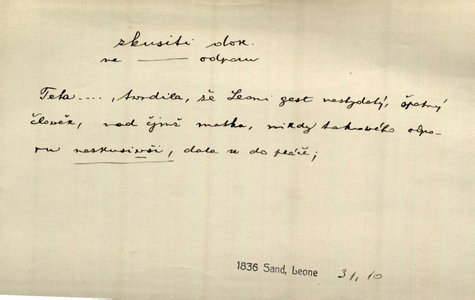 zkusiti dok.
ne ——— odporu
Teta ...., tvrdila, že Leoni gest nestydatý, špatný
člověk, nad čjmž matka, nikdy takového odpo-
ru neskusiwši, dala se do pláče;
1836 Sand, Leone 31, 10